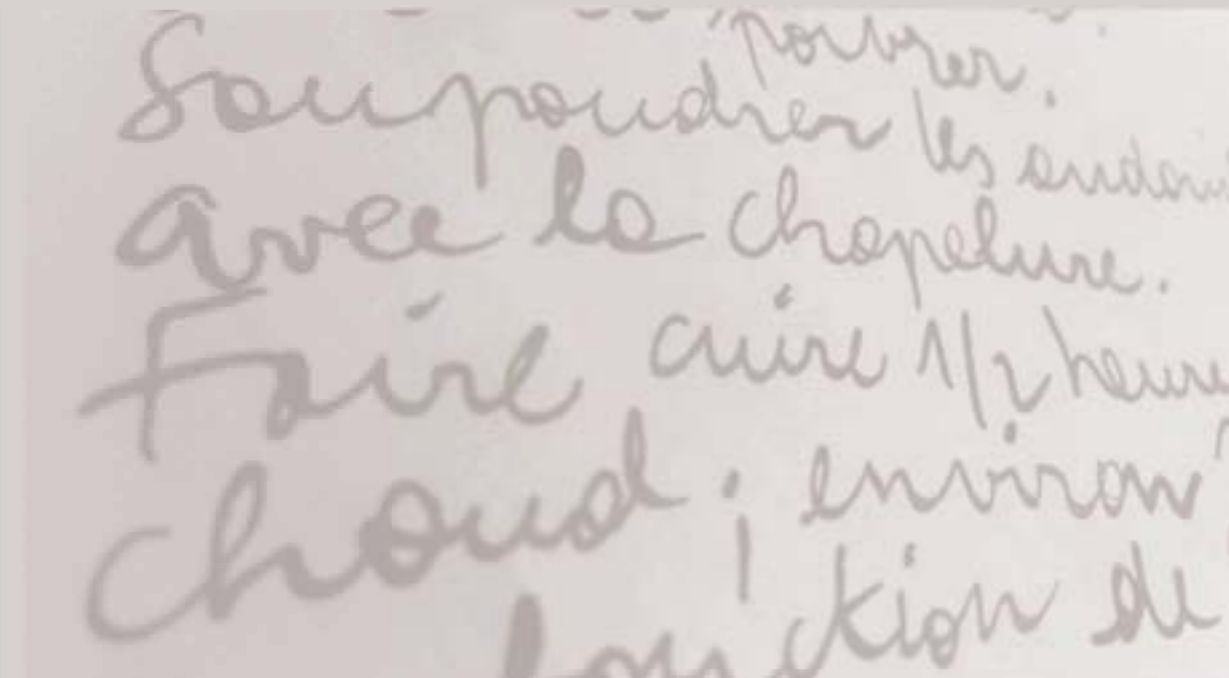 poivrer.
Soupoudrer les
avec la chapelure.
Faire cuire 1/2 heure
chaud ; environ
fonction de